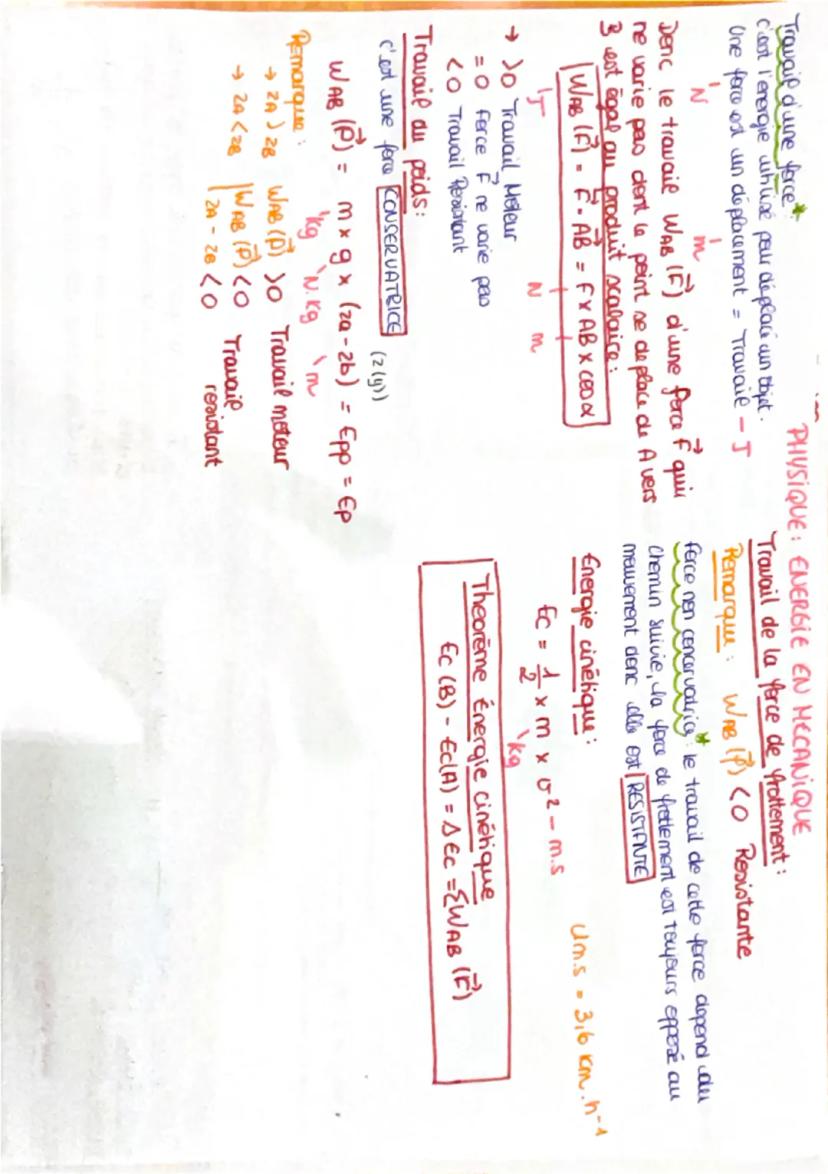 PHYSIQUE : ENERGIE EN MECANIQUE
Travail d'une force*
c'est l'energie utilisé pour déplacé un objet.
Une force est un déplacement = Travail - J
N m
Donc le travail WAB (F⃗) d'une force F⃗ qui
ne varie pas dont le point se deplace de A vers
B est égal au produit scalaire :
WAB (F⃗) = F⃗ · AB⃗ = F x AB x cos α
J N m
→ >0 Travail Moteur
= 0 Force F⃗ ne varie pas
<0 Travail Resistant
Travail du poids :
c'est une force CONSERVATRICE
(z(y))
WAB (P⃗) = m x g x (za - zb) = Epp = Ep
kg N.kg m
Remarque :
→ zA > zB WAB (P⃗) >0 Travail moteur
→ zA < zB WAB (P⃗) <0 Travail
zA - zB <0 resistant
Travail de la force de frottement :
Remarque : WAB (P⃗) <0 Resistante
Force non concervatrice* : le travail de cette force depend du
chemin suivie, la force de frottement est toujours opposé au
mouvement donc elle est RESISTANTE
Energie cinétique :
Ec = 1/2 x m x v² - m.s
kg
1m.s = 3,6 km.h-1
Theorème Énergie cinétique
Ec (B) - Ec(A) = Δ Ec = ΣWAB (F⃗)